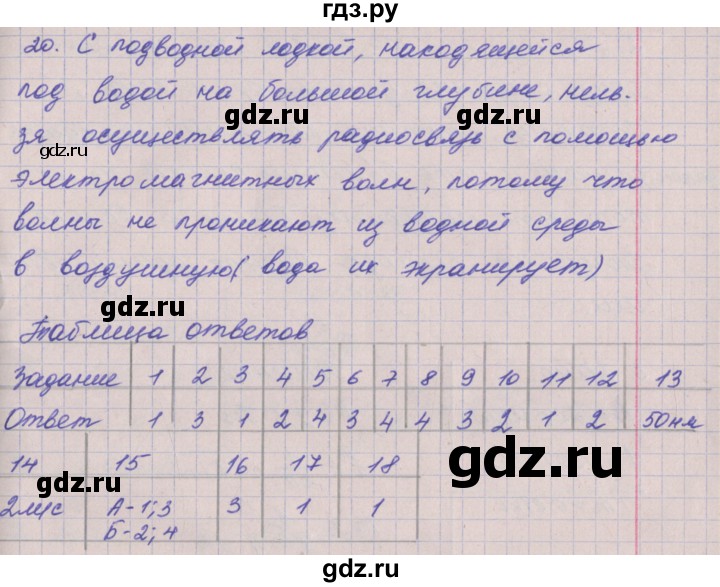 гдз.ру
20. С подводной лодкой, находящейся
под водой на большой глубине, нель-
зя осуществлять радиосвязь с помощью
электромагнитных волн, потому что
волны не проникают из водной среды
в воздушную( вода их экранирует)
Таблица ответов
Задание 1 2 3 4 5 6 7 8 9 10 11 12 13
Ответ 1 3 1 2 4 3 4 4 3 2 1 2 50нм
14 15 16 17 18
2мус А-1;3 3 1 1
Б-2;4
gdz.ru
gdz.ru
gdz.ru
gdz.ru
gdz.ru
gdz.ru
gdz.ru